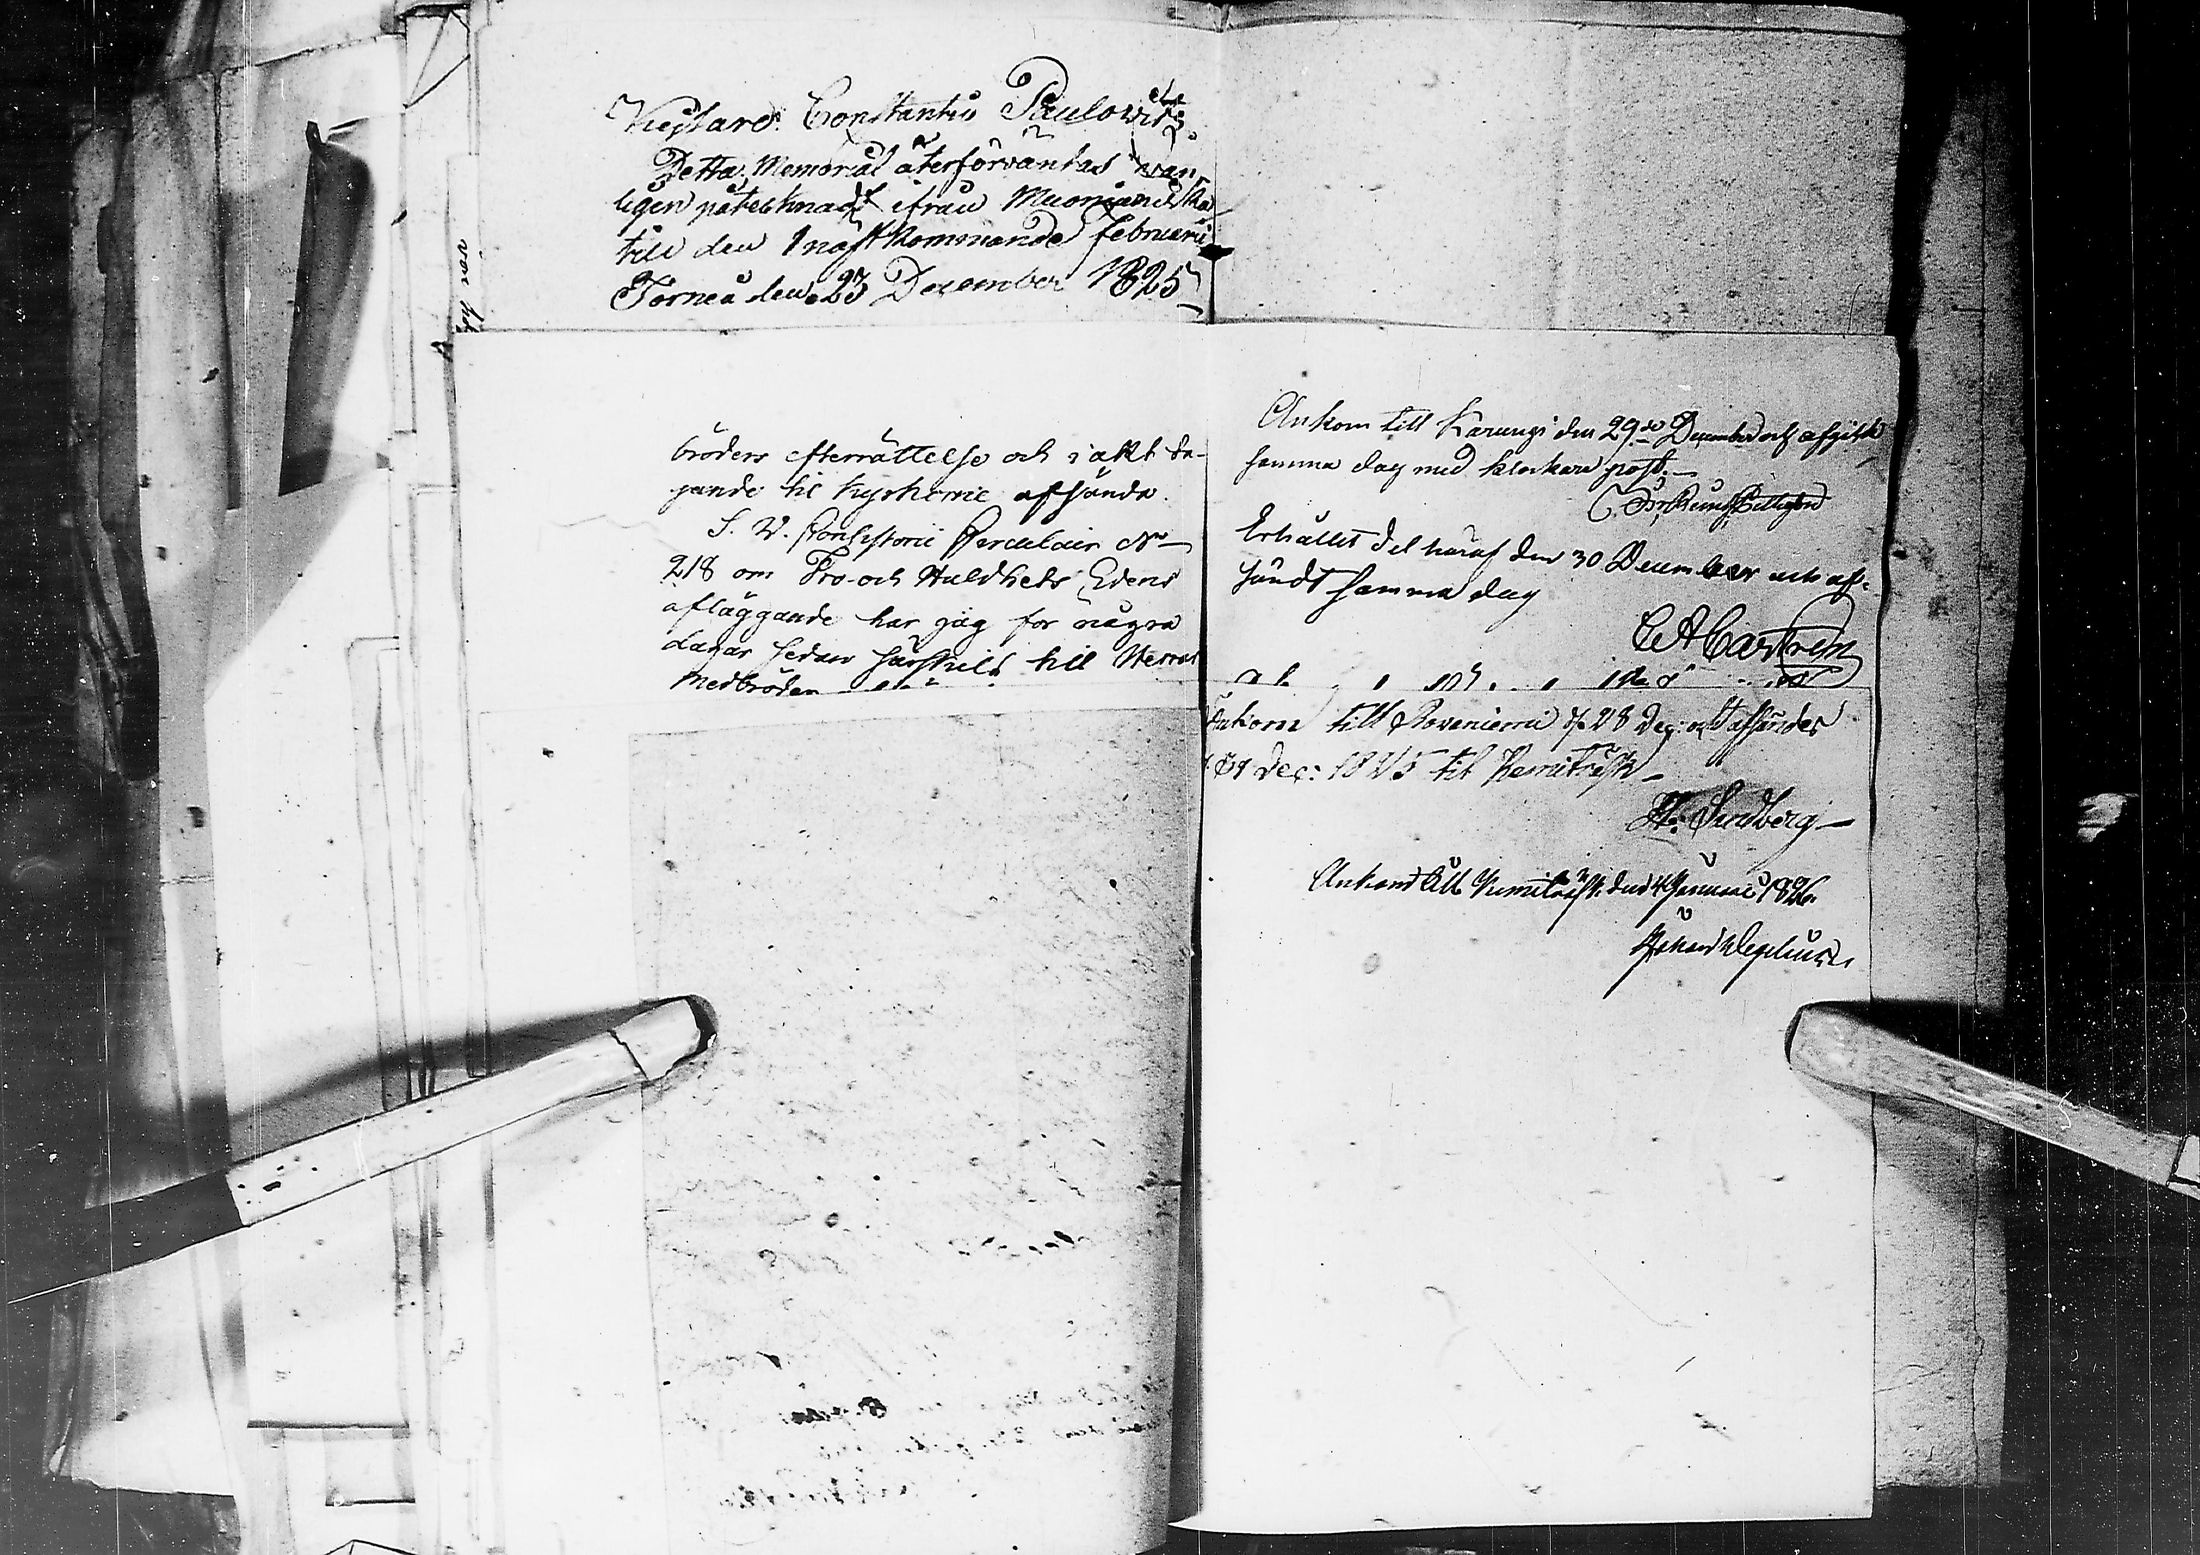 Constantin Paulowitz
Detta Memorial återförväntas wan-
ligen påtecknadt ifrån Muonioniska
till den 1 näst kommande februarii
Torneå den 23 December 1825
bröders efterrättelse och i akt ta-
gande til kyrkorne afsända.
S. V. Consistorii Circulair No
218 om Tro- och Huldhets Edens
afläggande har jag för några
dagar sedan särskilt till Herrar
Medbröder
Ankom till Karungi den 29de December och afgick
samma dag med klockare post.
Erhållit del häraf den 30 December och af-
sändt samma dag
C A Castrén
Ankom till Rovaniemi d. 28 Dec: och afsändes
d. 31 Dec: 1825 til Kemiträsk
Sundberg
Ankom till Kemiträsk den 4 Januarii 1826.
Johan Wegelius